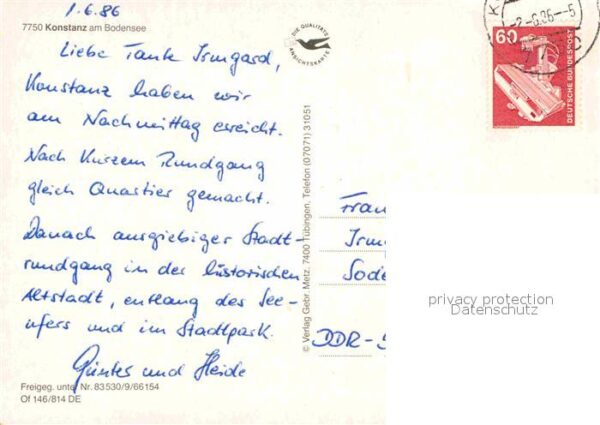 1.6.86
7750 Konstanz am Bodensee
DIE QUALITÄTS
ANSICHTSKARTE
Liebe Tante Irmgard,
Konstanz haben wir
am Nachmittag erreicht.
Nach Kurzem Rundgang
gleich Quartier gemacht.
Danach ausgiebiger Stadt
rundgang in der historischen
Altstadt, entlang des See-
ufers und im Stadtpark.
Günter und Heide
Freigeg. unter Nr. 83530/9/66154
Of 146/814 DE
© Verlag Gebr. Metz, 7400 Tübingen, Telefon (07071) 31051
-2-6.86--5
60
DEUTSCHE BUNDESPOST
Frau
Irm
Sode
DDR-
privacy protection
Datenschutz